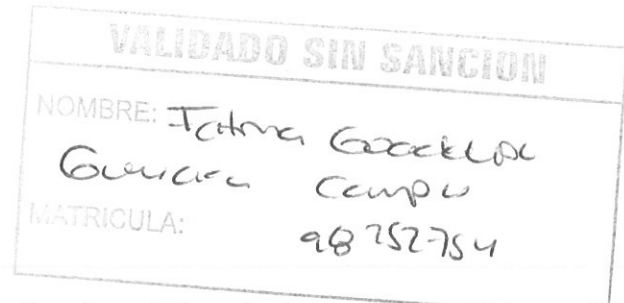 VALIDADO SIN SANCION
NOMBRE: Fatima Guadalupe
Campos
MATRICULA: 98252754